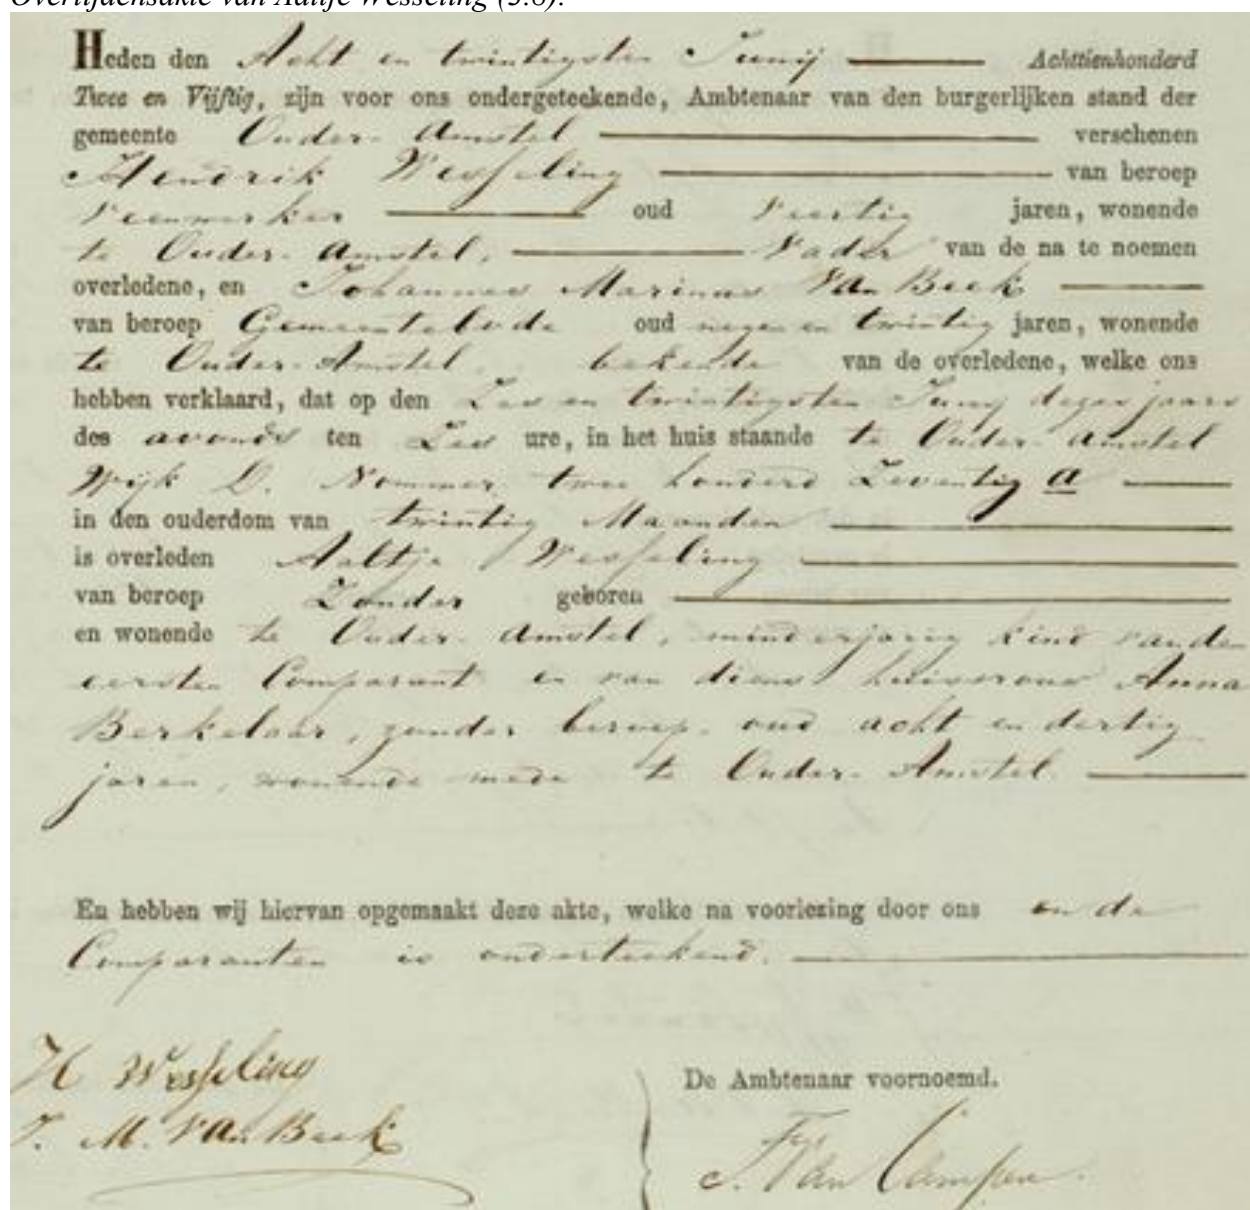 Overlijdensakte van Aaltje Wesseling (3.8).
Heden den Acht en twintigsten Junij Achttienhonderd
Twee en Vijftig, zijn voor ons ondergeteekende, Ambtenaar van den burgerlijken stand der
gemeente Ouder-Amstel verschenen
Hendrik Wesseling van beroep
Veenwerker oud Veertig jaren, wonende
te Ouder-Amstel, Vader van de na te noemen
overledene, en Johannes Marinus Van Beek
van beroep Gemeentebode oud negen en twintig jaren, wonende
te Ouder-Amstel, bekende van de overledene, welke ons
hebben verklaard, dat op den Zes en twintigsten Junij dezes jaars
des avonds ten Zes ure, in het huis staande te Ouder-Amstel
Wijk D. Nommer twee honderd Zeventig a
in den ouderdom van twintig Maanden
is overleden Aaltje Wesseling
van beroep Zonder geboren
en wonende te Ouder-Amstel, minderjarig kind van den
eersten Comparant en van diens huisvrouw Anna
Berkelaar, zonder beroep, oud acht en dertig
jaren, wonende mede te Ouder-Amstel.
En hebben wij hiervan opgemaakt deze akte, welke na voorlezing door ons en de
Comparanten is onderteekend.
H Wesseling
J. M. Van Beek
De Ambtenaar voornoemd.
J. Van Campen